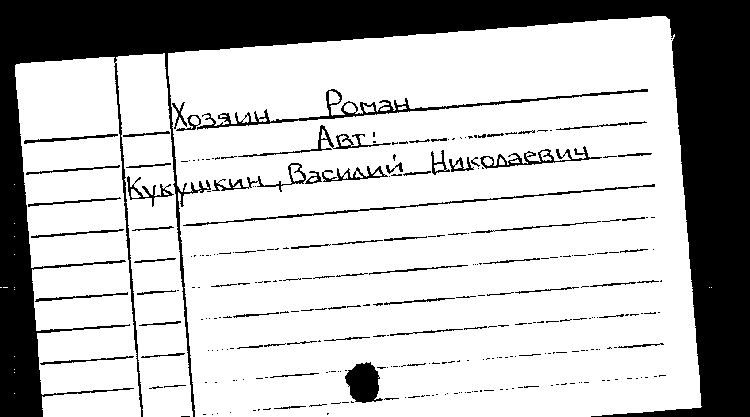 Хозяин Роман
Авт:
Кукушкин, Василий Николаевич